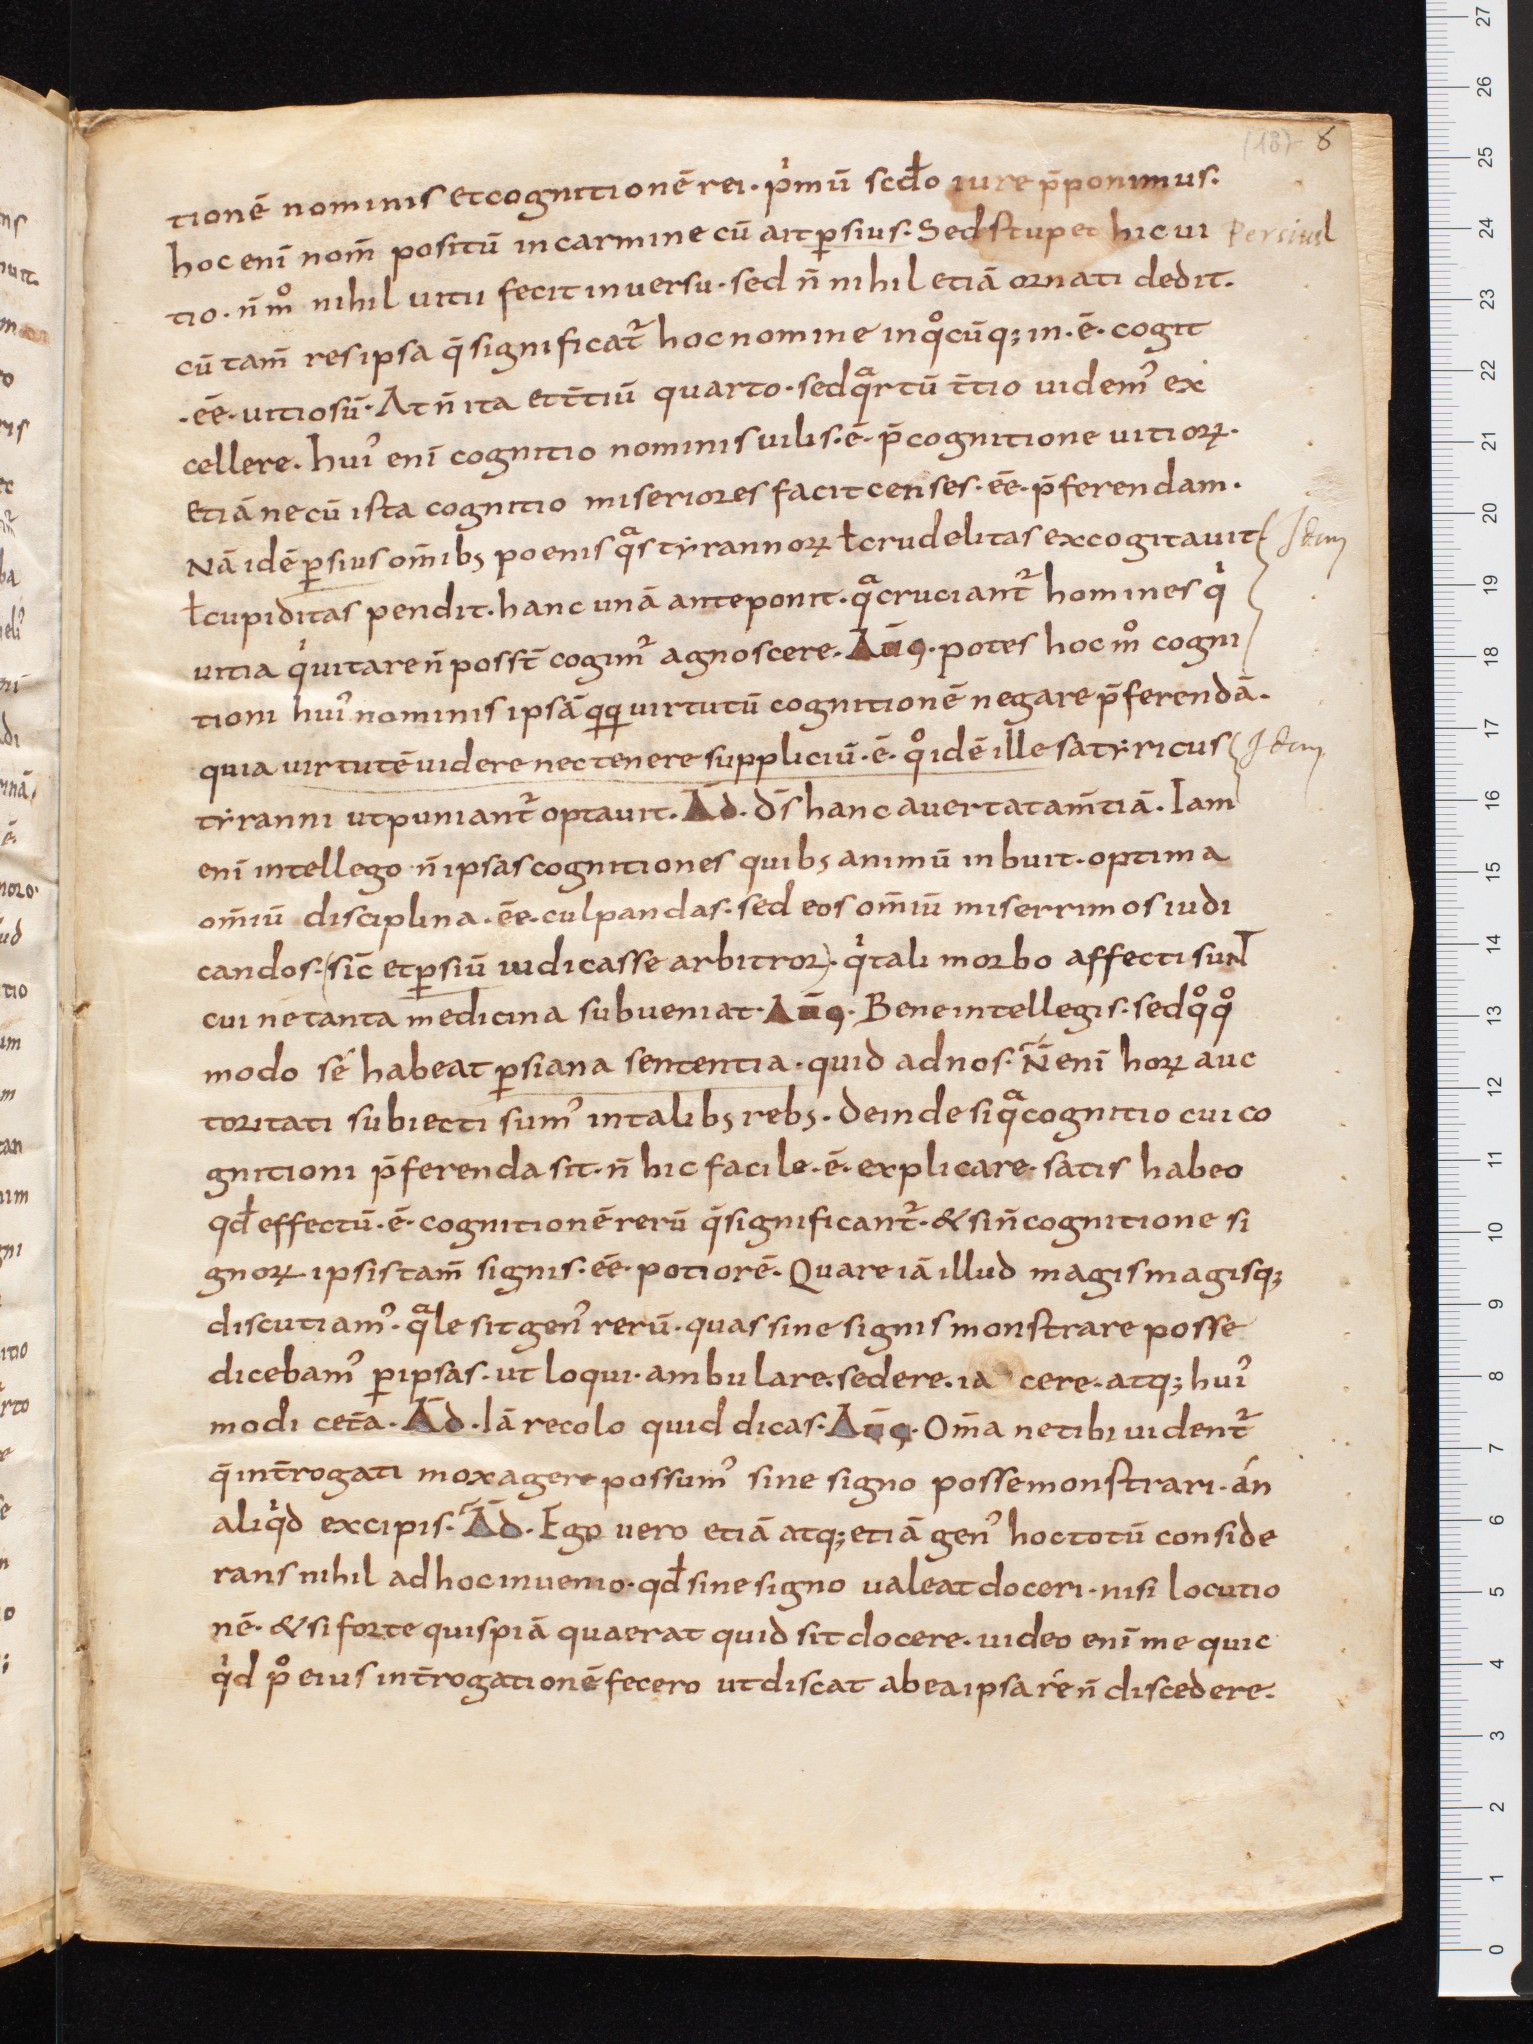 (18) 8
tionē nominis et cognitionē rei · p͛imū scđo iure p̄ponimus ·
hoc enī nom̄ positū in carmine cū ait ꝑsius · Sed stupet hic ui Persius
tio · n̄ mͦ nihil uitii fecit in uersu · sed n̄ nihil etiā ornati dedit ·
cū tam̄ res ipsa q̄ significat᷑ hoc nomine in qͦcūq; in · ē · cogit
· ēē · uitiosū · At n̄ ita et t̄tiū quarto · sed qͣrtū t̄tio uidemꝰ ex
cellere · huiꝰ enī cognitio nominis uilis · ē · p̄ cognitione uitioꝝ ·
etiā ne cū ista cognitio miseriores facit censes · ēē · p̄ferendam ·
Nā idē ꝑsius om̄ibꝫ poenis qͣs tyrannoꝝ ł crudelitas excogitauit Idem
ł cupiditas pendit · hanc unā anteponit · qͣ cruciant᷑ homines qͥ
uitia qͥ uitare n̄ posst̄ cogim᷑ agnoscere · Aūg · potes hoc mͦ cogni
tioni huiꝰ nominis ipsā qq uirtutū cognitionē negare p̄ferendā ·
quia uirtutē uidere nec tenere suppliciū · ē · qͦ idē ille satyricus Idem
tyranni ut puniant᷑ optauit · Ād · d̄s hanc auertat am̄tiā · Iam
enī intellego n̄ ipsas cognitiones quibꝫ animū inbuit · optima
om̄iū disciplina · ēē · culpandas · sed eos om̄iū miserrimos iudi
candos · (sic̄ et ꝑsiū iudicasse arbitror) · qͥ tali morbo affecti sunt
cui ne tanta medicina subueniat · Aūg · Bene intellegis · sed qͦqͦ
modo se habeat ꝑsiana sententia · quid ad nos · N̄ enī hoꝝ auc
toritati subiecti sumꝰ in talibꝫ rebꝫ · Deinde si qͣ cognitio cui co
gnitioni p̄ferenda sit · n̄ hic facile · ē · explicare · satis habeo
qđ effectū · ē · cognitionē rerū q̄ significant᷑ · & si n̄ cognitione si
gnoꝝ ipsis tam̄ signis · ēē · potiorē · Quare iā illud magis magisq;
discutiamꝰ · qͣle sit genꝰ rerū · quas sine signis monstrare posse
dicebamꝰ ꝑ ipsas · ut loqui · ambulare · sedere · ia cere · atq; huiꝰ
modi cet̄a · Ād · Iā recolo quid dicas · Aūg · Om̄a ne tibi uident᷑
q̄ int̄rogati mox agere possumꝰ sine signo posse monstrari · án
aliqͥd excipis · Ād · Ego uero etiā atq; etiā genꝰ hoc totū conside
rans nihil adhoc inuenio · qđ sine signo ualeat doceri · nisi locutio
nē · & si forte quispiā quaerat quid sit docere · uideo enī me quic
qͥd pͦ eius int̄rogationē fecero ut discat ab ea ipsa ré n̄ discedere ·
27
26
25
24
23
22
21
20
19
18
17
16
15
14
13
12
11
10
9
8
7
6
5
4
3
2
1
0